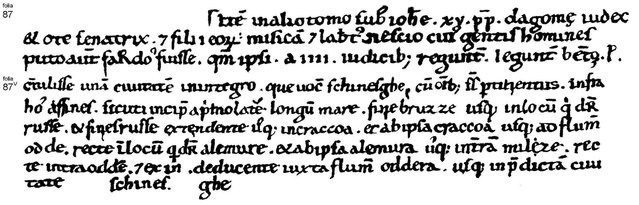 folia
87
Itē in alio tomo sub ioħe . xv . p̄p . dagome iudex
& ote senatrix . ⁊ filii eoꝝ . misicā ⁊ lab̄t' nescio cui' gentis homines
puto aut̄ sardo' fuisse . qm̄ ipsi . a IIII . iudicib; regunt̄ . Legunt̄ bēto . P .
folia
87v
c̄tulisse unā ciuitatē in integro . que uoc̄ schinesghe , cū oīb; suis ptinentiis . infra
ho' affines . sicuti incip̄ a p̄mo latē . longū mare . fine bruzze usq; in locū q̇ dr̄
russe . & fines russe extendente usq; incraccoa . & ab ipsa craccoa usq; ad flum̄
odde , recte ī locū q̇ dr̄ alemure . & ab ipsa alemura usq; in t̄rā milęze . rec
te intra odde . ⁊ ex in . deducente iuxta flum̄ oddera . usq; in p̄dictā ciui
tate schines . ghe